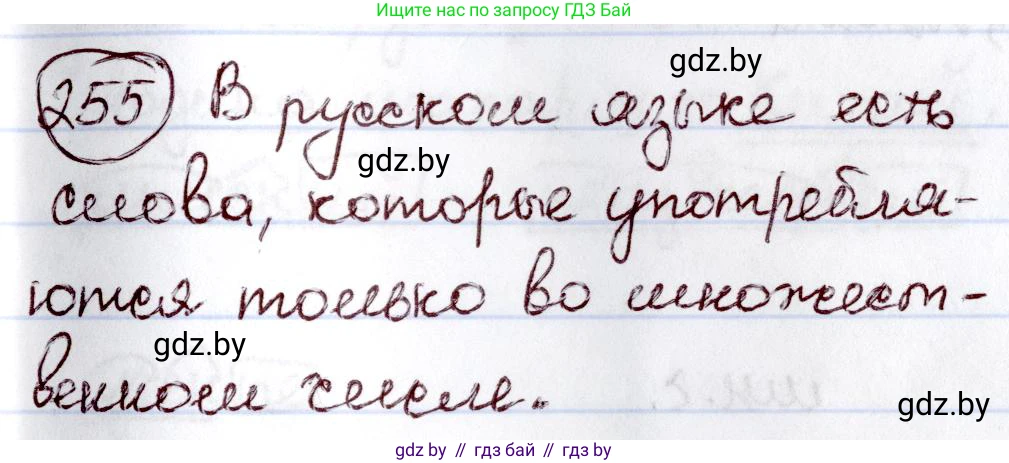 Ищите нас по запросу ГДЗ Бай
255 В русском языке есть
gdz.by
gdz.by
слова, которые употребля-
ются только во множест-
gdz.by
венном числе.
gdz.by
gdz.by // гдз бай // гдз.by